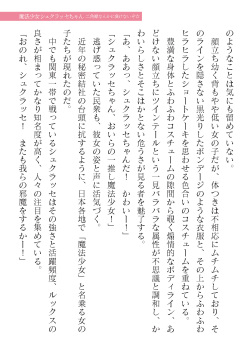 魔法少女シュクラッセちゃん
のようなことは気にも留めていない。
　顔立ち幼く背もやや低い女の子だが、体つきは不相応にムチムチしており、そ
のラインを隠さない黒光りボンテージのような衣服と、その上からふわふわ
ヒラヒラしたショートケーキを思わせる色合いのコスチュームを重ねている。
　豊満な身体とふわふわコスチュームの隙間から覗く煽情的なボディライン、あ
どけない顔立ちにツインテールという一見バラバラな属性が不思議と調和し、か
わいらしさとそこはかとない色香さが見る者を魅了する。
「あっ、あああっ、シュクラッセちゃんだー！　かわいーー！」
「シュクラッセちゃん、おいらの一推し魔法少女ー！」
　逃げ惑っていた民衆も、彼女の姿と声に活気づく。
　近年の秘密結社の台頭に抗するように、日本各地で『魔法少女』と名乗る女の
子たちが現れたのだ。
　中でも関東一帯で戦っているシュクラッセはその強さと活躍頻度、ルックスの
良さが相まってかなり知名度が高く、人々の注目を集めている。
「おのれ、シュクラッセ！　またも我らの邪魔をするかー！」